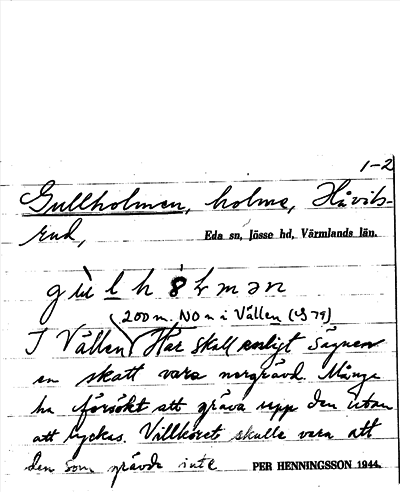 1-2
Gullholmen, holme, Håvils-
rud,
Eda sn, Jösse hd, Värmlands län.
200 m. NO n i Vällen (LS 79)
I Vällen Här skall enligt sägnen
en skatt vara nergrävd. Många
ha försökt att gräva upp den utan
att lyckas. Villkoret skulle vara att
den som grävde inte
PER HENNINGSSON 1944.